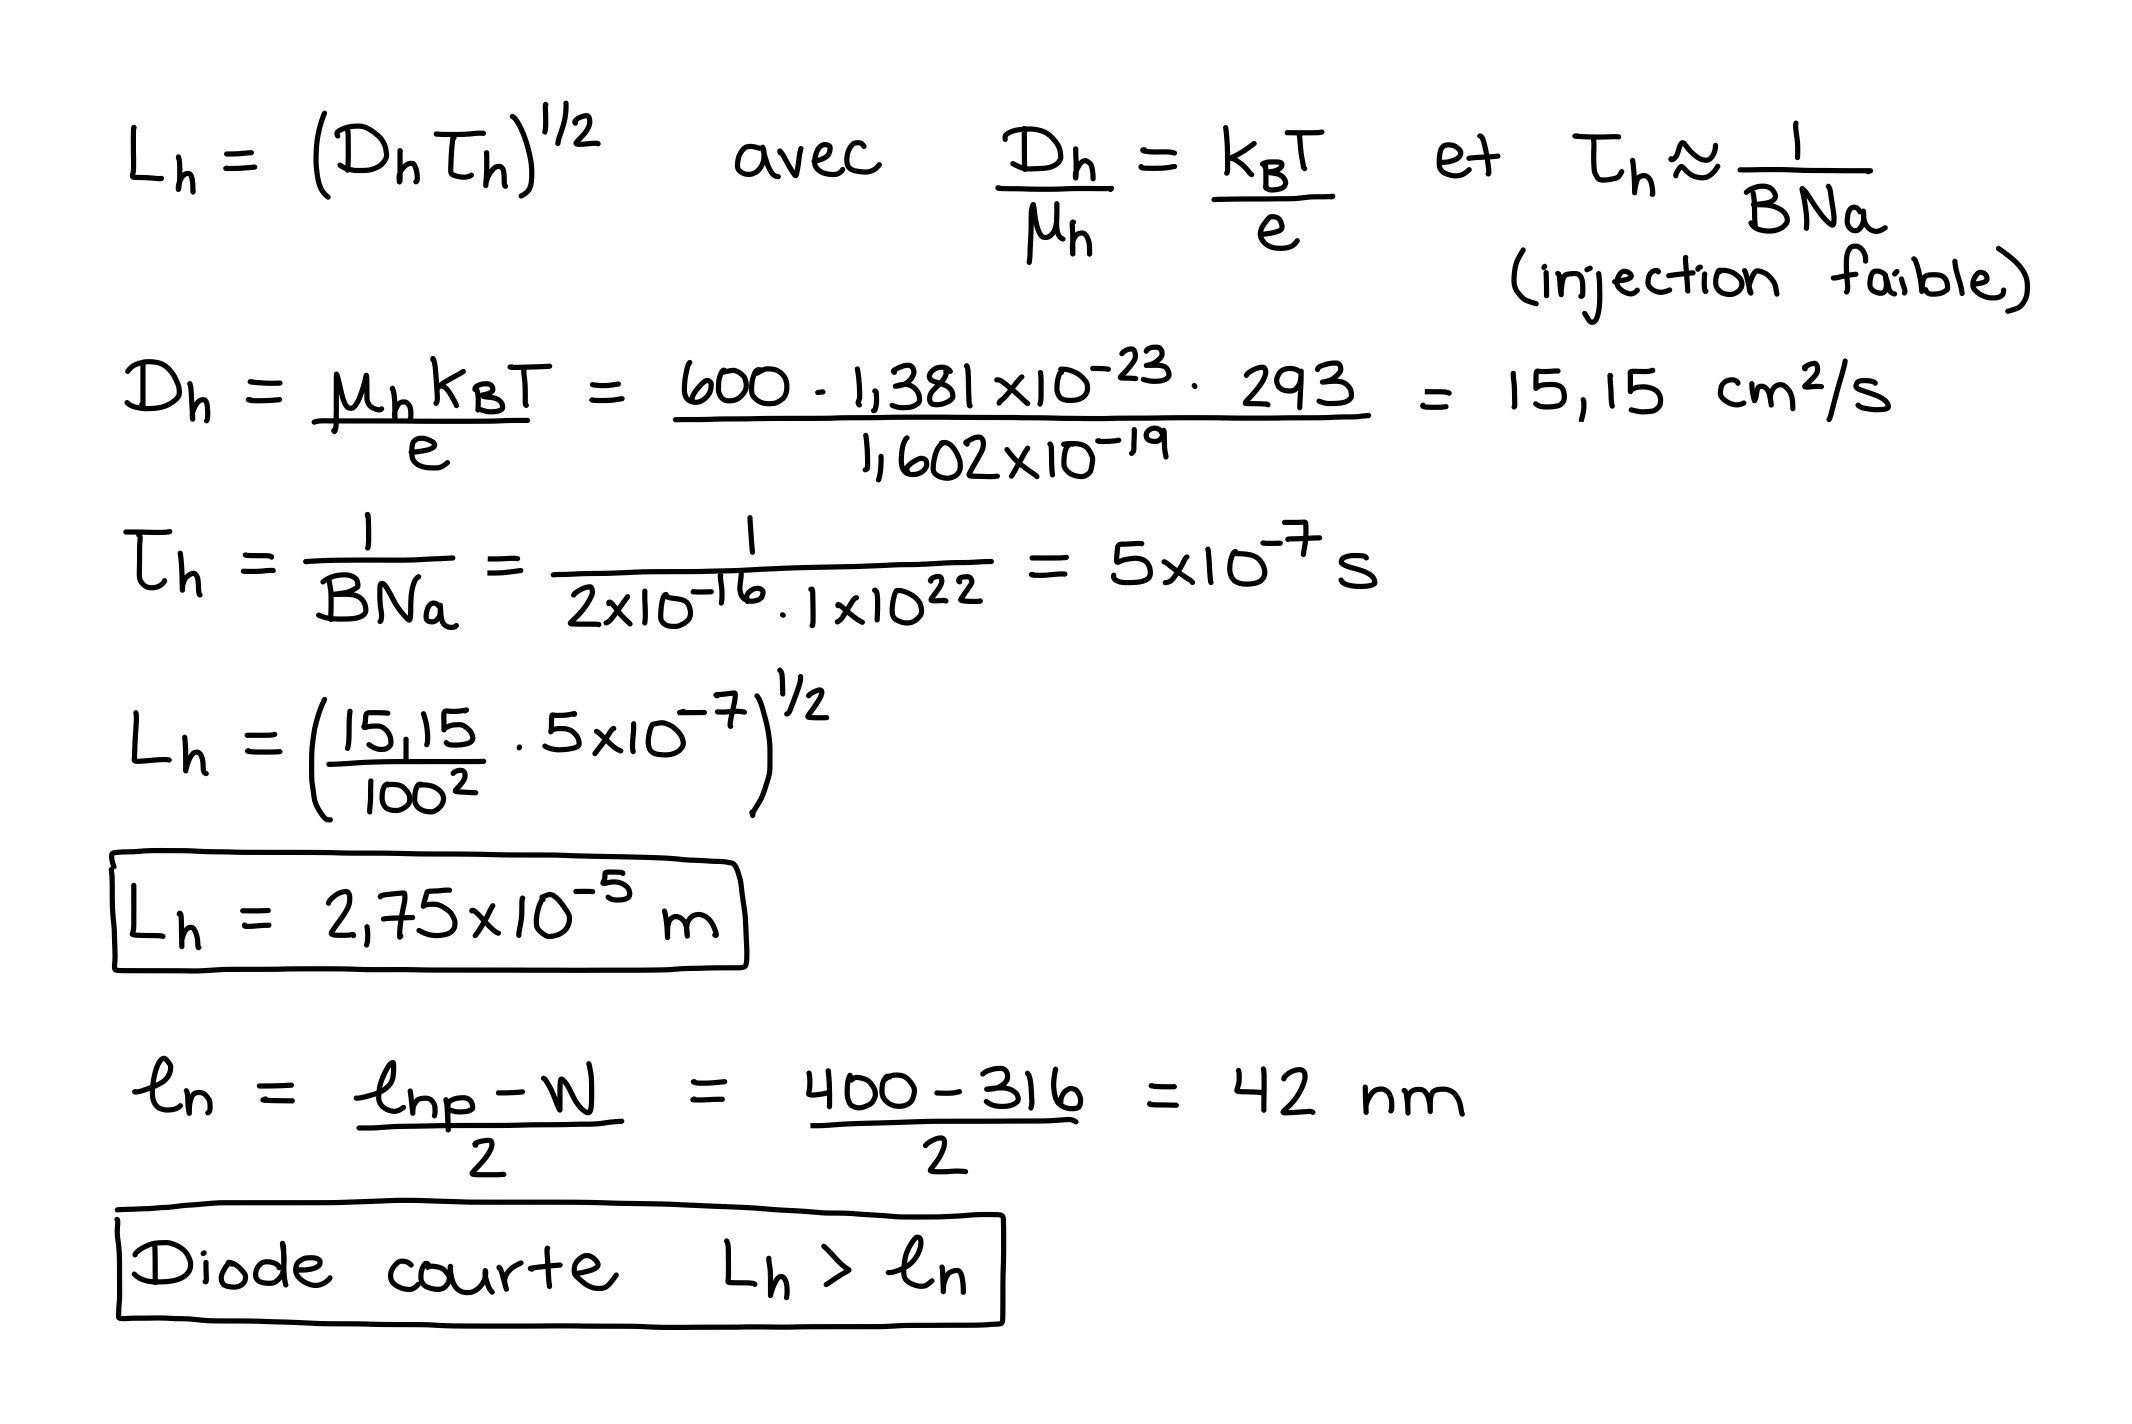 Lh = (Dh τh)^1/2 avec Dh/μh = kBT/e et τh ≈ 1/BNa
(injection faible)
Dh = μh kBT/e = 600 · 1,381x10^-23 · 293/1,602x10^-19 = 15,15 cm²/s
τh = 1/BNa = 1/2x10^-16 · 1x10^22 = 5x10^-7 s
Lh = (15,15/100² · 5x10^-7)^1/2
Lh = 2,75x10^-5 m
ℓn = ℓnp - W/2 = 400 - 316/2 = 42 nm
Diode courte Lh > ℓn